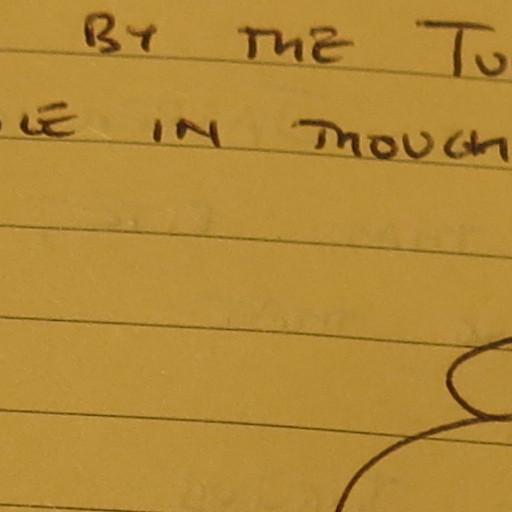 BY THE TU
LE IN THOUGH